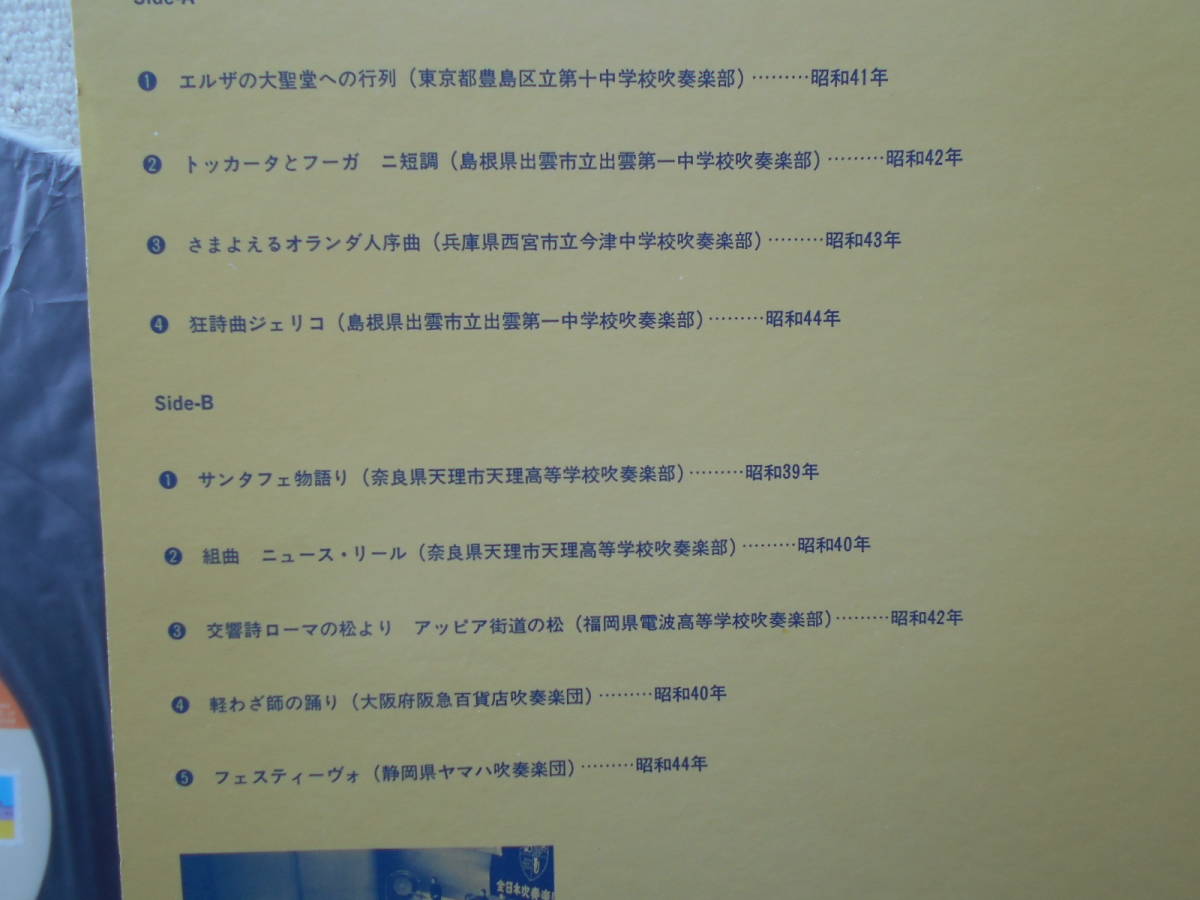 Side-A
❶ エルザの大聖堂への行列(東京都豊島区立第十中学校吹奏楽部)………昭和41年
❷ トッカータとフーガ　ニ短調(島根県出雲市立出雲第一中学校吹奏楽部)………昭和42年
❸ さまよえるオランダ人序曲(兵庫県西宮市立今津中学校吹奏楽部)………昭和43年
❹ 狂詩曲ジェリコ(島根県出雲市立出雲第一中学校吹奏楽部)………昭和44年
Side-B
❶ サンタフェ物語り(奈良県天理市天理高等学校吹奏楽部)………昭和39年
❷ 組曲　ニュース・リール(奈良県天理市天理高等学校吹奏楽部)………昭和40年
❸ 交響詩ローマの松より　アッピア街道の松(福岡県電波高等学校吹奏楽部)………昭和42年
❹ 軽わざ師の踊り(大阪府阪急百貨店吹奏楽団)………昭和40年
❺ フェスティーヴォ(静岡県ヤマハ吹奏楽団)………昭和44年
全日本吹奏楽